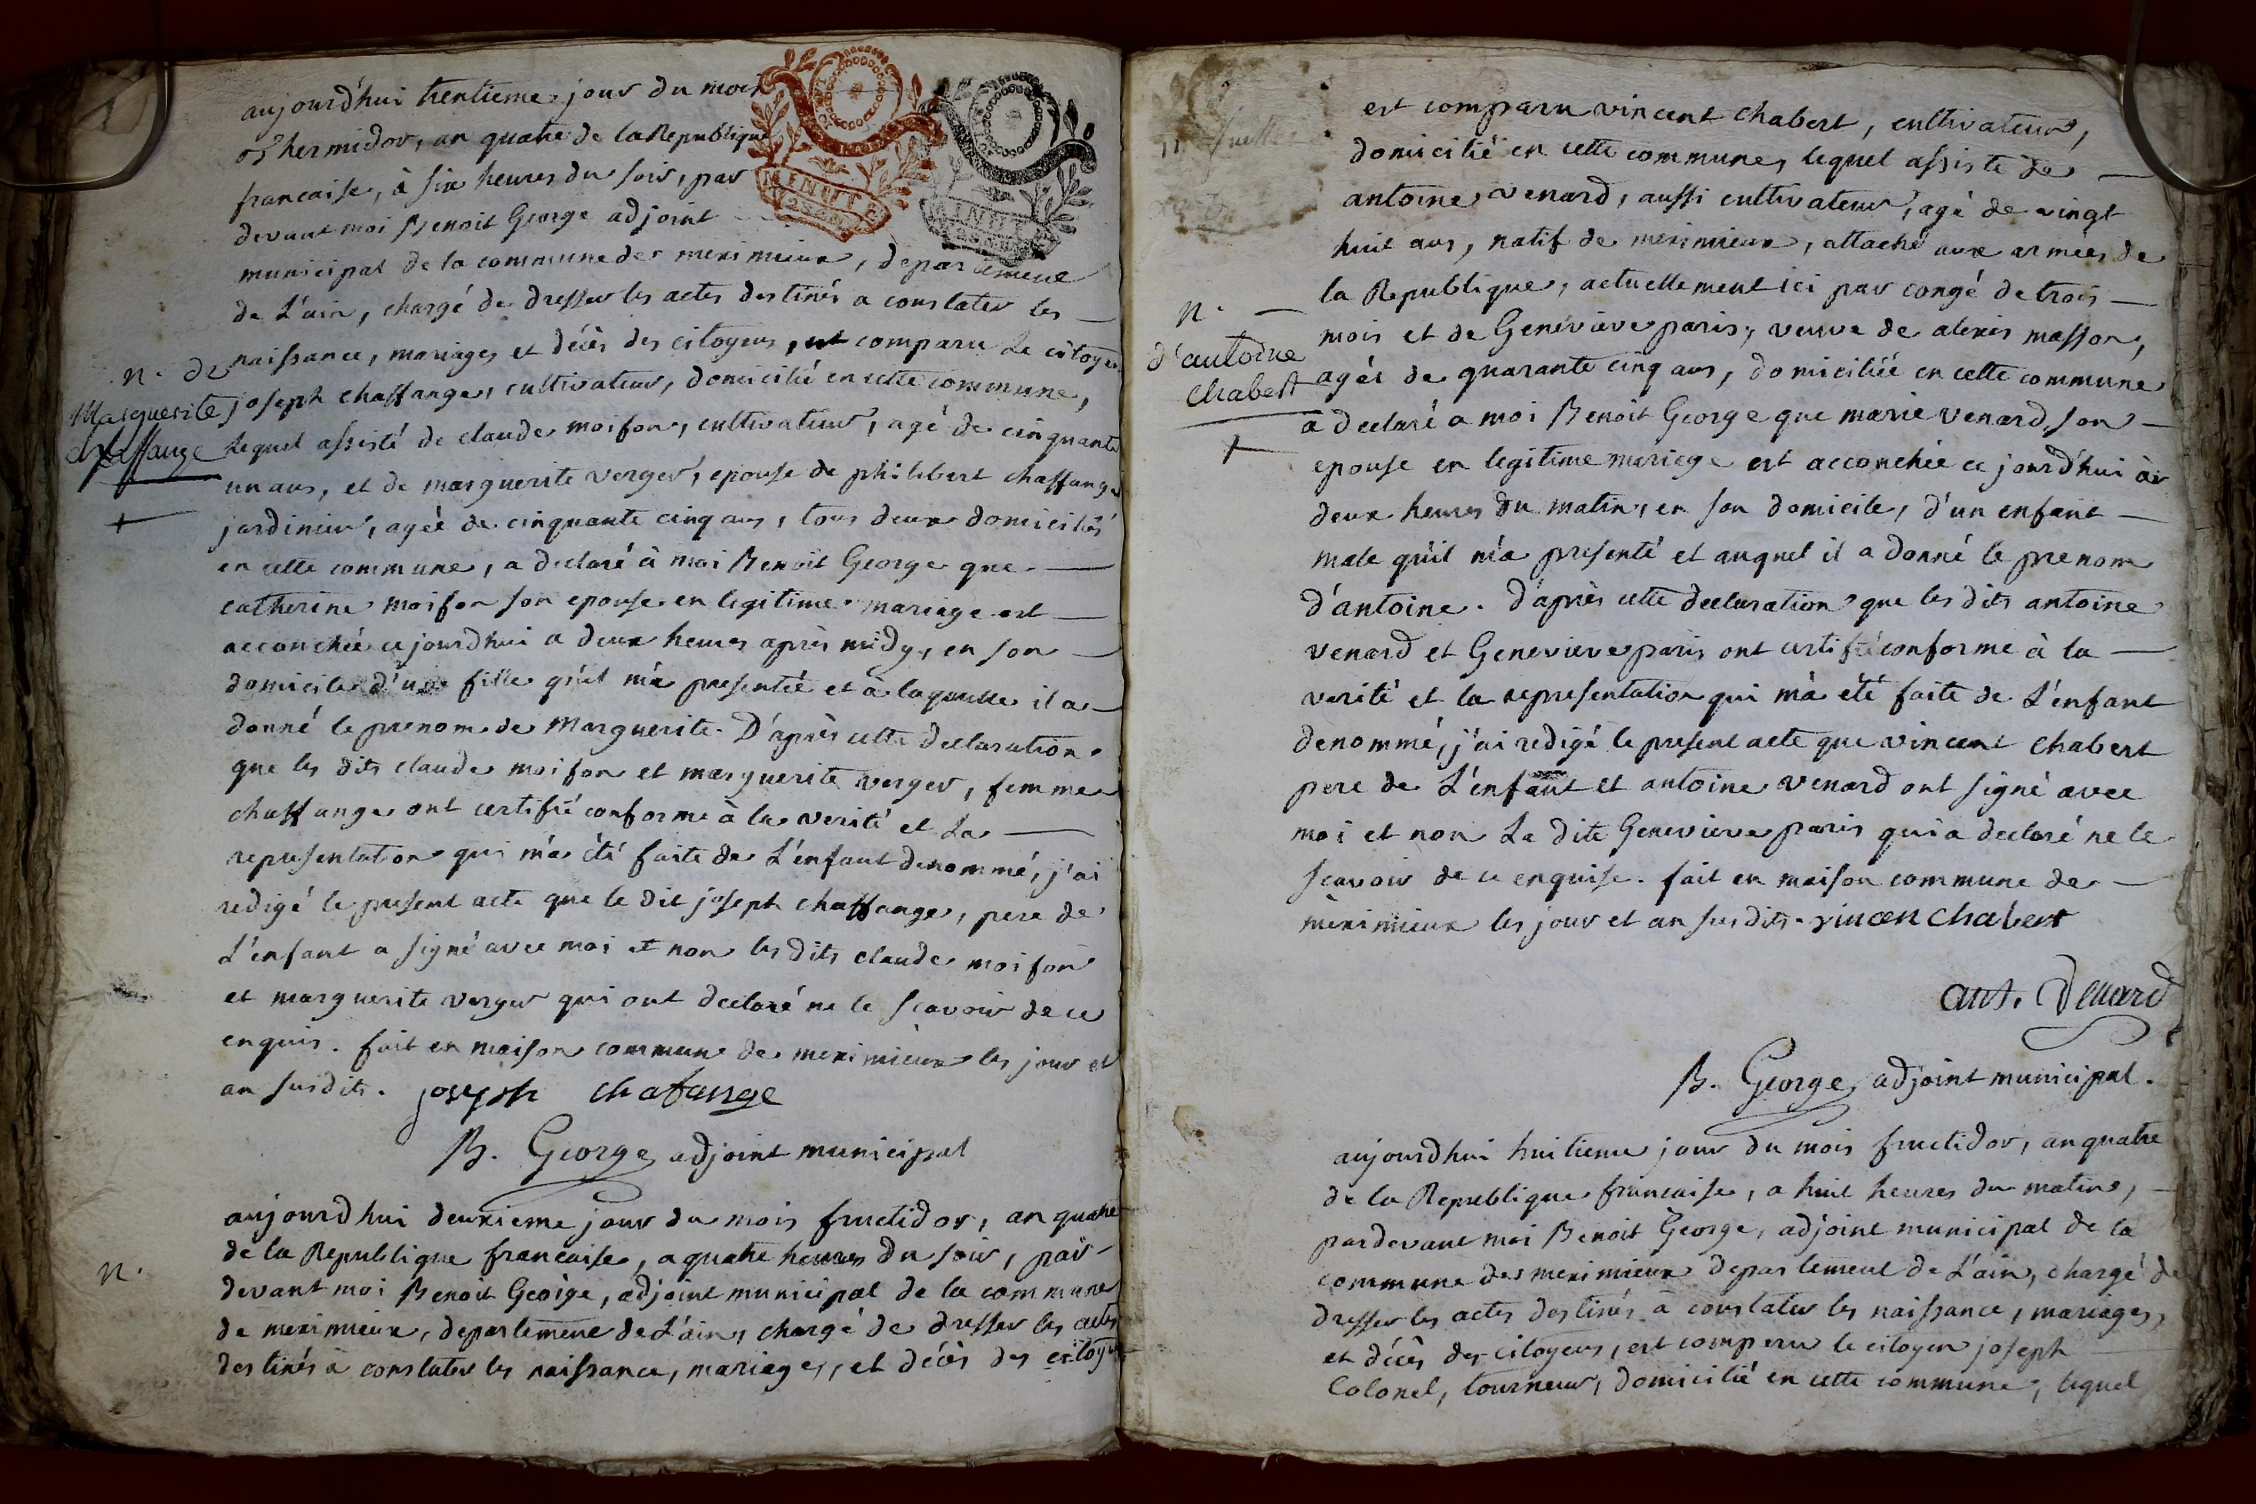 aujourd'hui trentieme jour du mois
thermidor, an quatre de la Republique
francaise, à six heures du soir, par
devant moi Benoit George adjoint
municipal de la commune de meximieux, departement
de L'ain, chargé de dresser les actes destinés a constater les
naissance, mariages et décès des citoyens, est comparu Le citoyen
n. de
Marguerite
chaffange
joseph chaffange, cultivateur, domicilié en cette commune,
lequel assisté de claude moifon, cultivateur, agé de cinquante
un ans, et de marguerite verger, epouse de philibert chaffange
jardinier, agée de cinquante cinq ans, tous deux domiciliés
en cette commune, a declaré à moi Benoit George que
catherine moifon son epouse en legitime mariage est
accouchée ce jourd'hui a deux heures après midy, en son
domicile d'une fille qu'il m'a presentée et à laquelle il a
donné le prenom de Marguerite. D'après cette declaration
que les dits claude moifon et marguerite verger, femme
chaffange ont certifié conforme à la verité et La
representation qui m'a été faite de L'enfant denommé, j'ai
redigé le present acte que le dit joseph chaffange, pere de
L'enfant a signé avec moi et non les dits claude moifon
et marguerite verger qui ont declaré ne le scavoir de ce
enquis. fait en maison commune de meximieux les jour et
an susdits. joseph chafange
B. George adjoint municipal
aujourd'hui deuxieme jour du mois fructidor, an quatre
de la Republique francaise, a quatre heures du soir, par
n.
devant moi Benoit George, adjoint municipal de la commune
de meximieux, departement de L'ain, chargé de dresser les actes
destinés à constater les naissance, mariages, et décès des citoyens
est comparu vincent chabert, cultivateur,
domicilié en cette commune, lequel assisté de
antoine venard, aussi cultivateur, agé de vingt
huit ans, natif de meximieux, attaché aux armées de
la Republique, actuellement ici par congé de trois
mois et de Genevieve paris, veuve de alexis masson,
n.
d'antoine
chabert
agée de quarante cinq ans, domiciliée en cette commune
a declaré a moi Benoit George que marie venard, son
epouse en legitime mariage est accouchée ce jourd'hui à
deux heures du matin, en son domicile, d'un enfant
male qu'il m'a presenté et auquel il a donné le prenom
d'antoine. d'après cette declaration que les dits antoine
venard et Genevieve paris ont certifié conforme à la
verité et la representation qui m'a été faite de L'enfant
denommé, j'ai redigé le present acte que vincent chabert
pere de L'enfant et antoine venard ont signé avec
moi et non La dite Genevieve paris qui a declaré ne le
scavoir de ce enquise. fait en maison commune de
meximieux les jour et an susdits. vincen chabert
ant. Venard
B. George, adjoint municipal.
aujourd'hui huitieme jour du mois fructidor, an quatre
de la Republique francaise, a huit heures du matin,
pardevant moi Benoit George, adjoint municipal de la
commune de meximieux departement de L'ain, chargé de
dresser les actes destinés à constater les naissance, mariages,
et décès des citoyens, est comparu le citoyen joseph
Colonel, tourneur, domicilié en cette commune, lequel